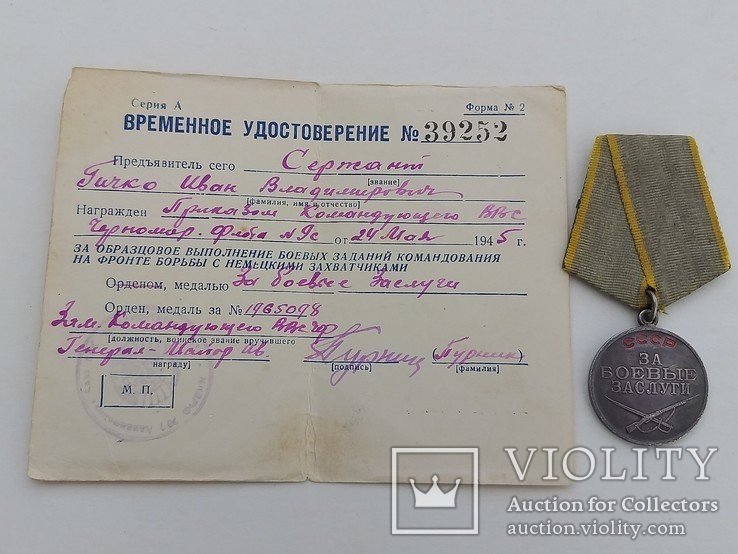 Серия А
Форма № 2
ВРЕМЕННОЕ УДОСТОВЕРЕНИЕ № 39252
Предъявитель сего Сержант
[звание]
Гичко Иван Владимирович
[фамилия, имя и отчество]
Награжден Приказом Командующего ВВС
Черномор. Флота №9с от 24 Мая 1945 г.
ЗА ОБРАЗЦОВОЕ ВЫПОЛНЕНИЕ БОЕВЫХ ЗАДАНИЙ КОМАНДОВАНИЯ
НА ФРОНТЕ БОРЬБЫ С НЕМЕЦКИМИ ЗАХВАТЧИКАМИ
Орденом, медалью За боевые Заслуги
Орден, медаль за № 1965098
Зам. Командующего ВВС ЧФ
[должность, воинское звание вручившего
Генерал-Майор Ав. (Пурник)
награду]
[подпись]
(фамилия)
М. П.
СССР
ЗА
БОЕВЫЕ
ЗАСЛУГИ
VIOLITY
Auction for Collectors
auction.violity.com